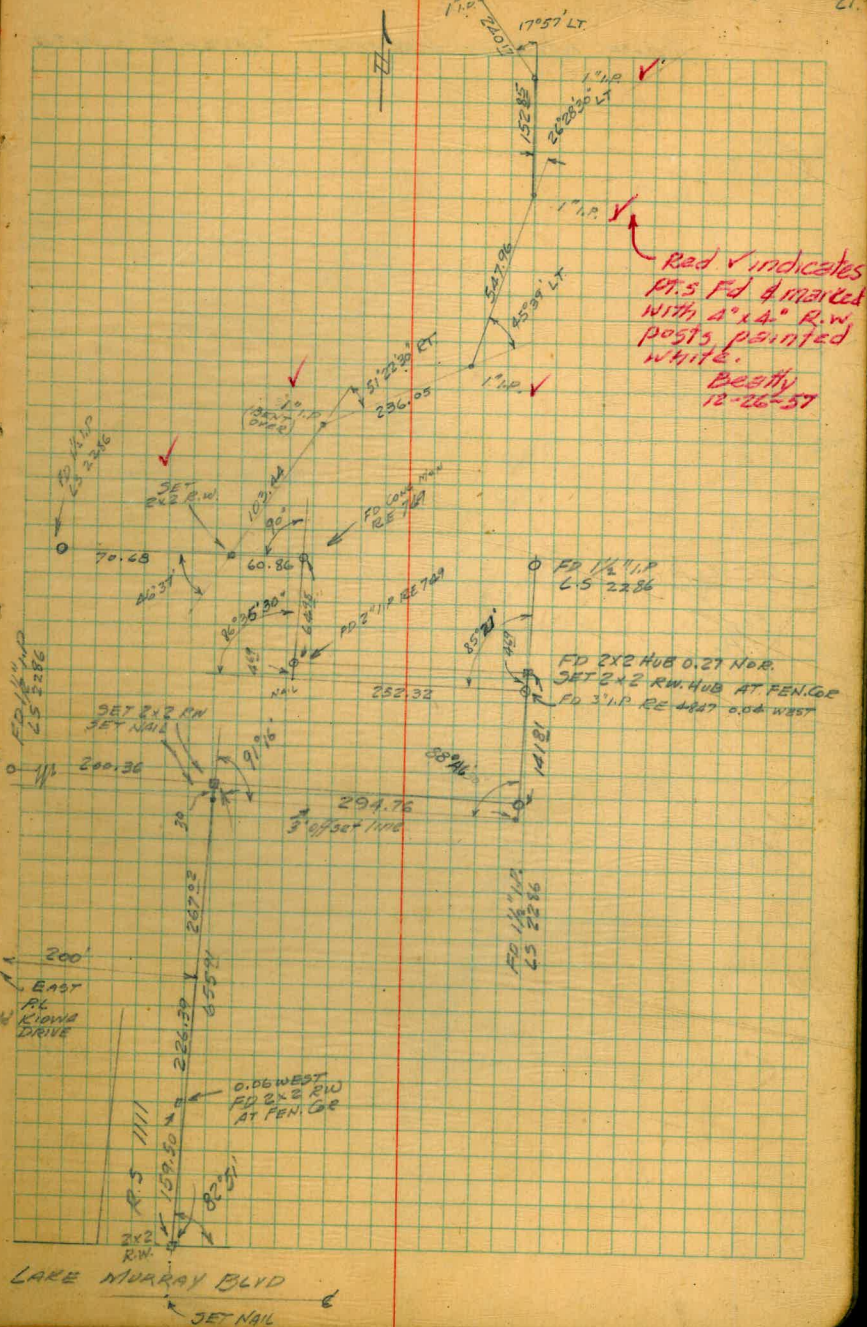 1" I.P.
17°57' LT.
1" I.P.
152.85
26°28'30" LT
1" I.P.
Red ✓ indicates
PT.s Fd & marked
with 4"x4" R.W.
posts painted
white.
Beatty
12-26-57
547.96
45°39' LT.
1" I.P.
51°22'30" RT.
236.05
1"
(BENT I.P.
OVER)
FD 1½ I.P
LS 2286
SET
2x2 R.W.
103.44
90°
FD CONC MON
RE 769
70.68
60.86
46°37'
FD 1½" I.P
L.S 2286
86°35'30"
64.95
FD 2" I.P RE 769
85°21'
469
469
NAIL
252.32
FD 2X2 HUB 0.27 NOR.
SET 2x2 RW. HUB AT FEN. COR
FD 3" I.P RE 4847 0.04 WEST
FD 1½" I.P
LS 2286
SET 2x2 RW
SET NAIL
91°16'
141.81
88°46'
200.36
294.76
3' offset line
30
FD 1½" I.P.
LS 2286
267.02
200'
EAST
P.L
KIOWA
DRIVE
655.91
226.39
0.06 WEST
FD 2X2 RW
AT FEN. COR
R.S 1111
159.50
82°51'
2x2
R.W.
LAKE MURRAY BLVD
SET NAIL